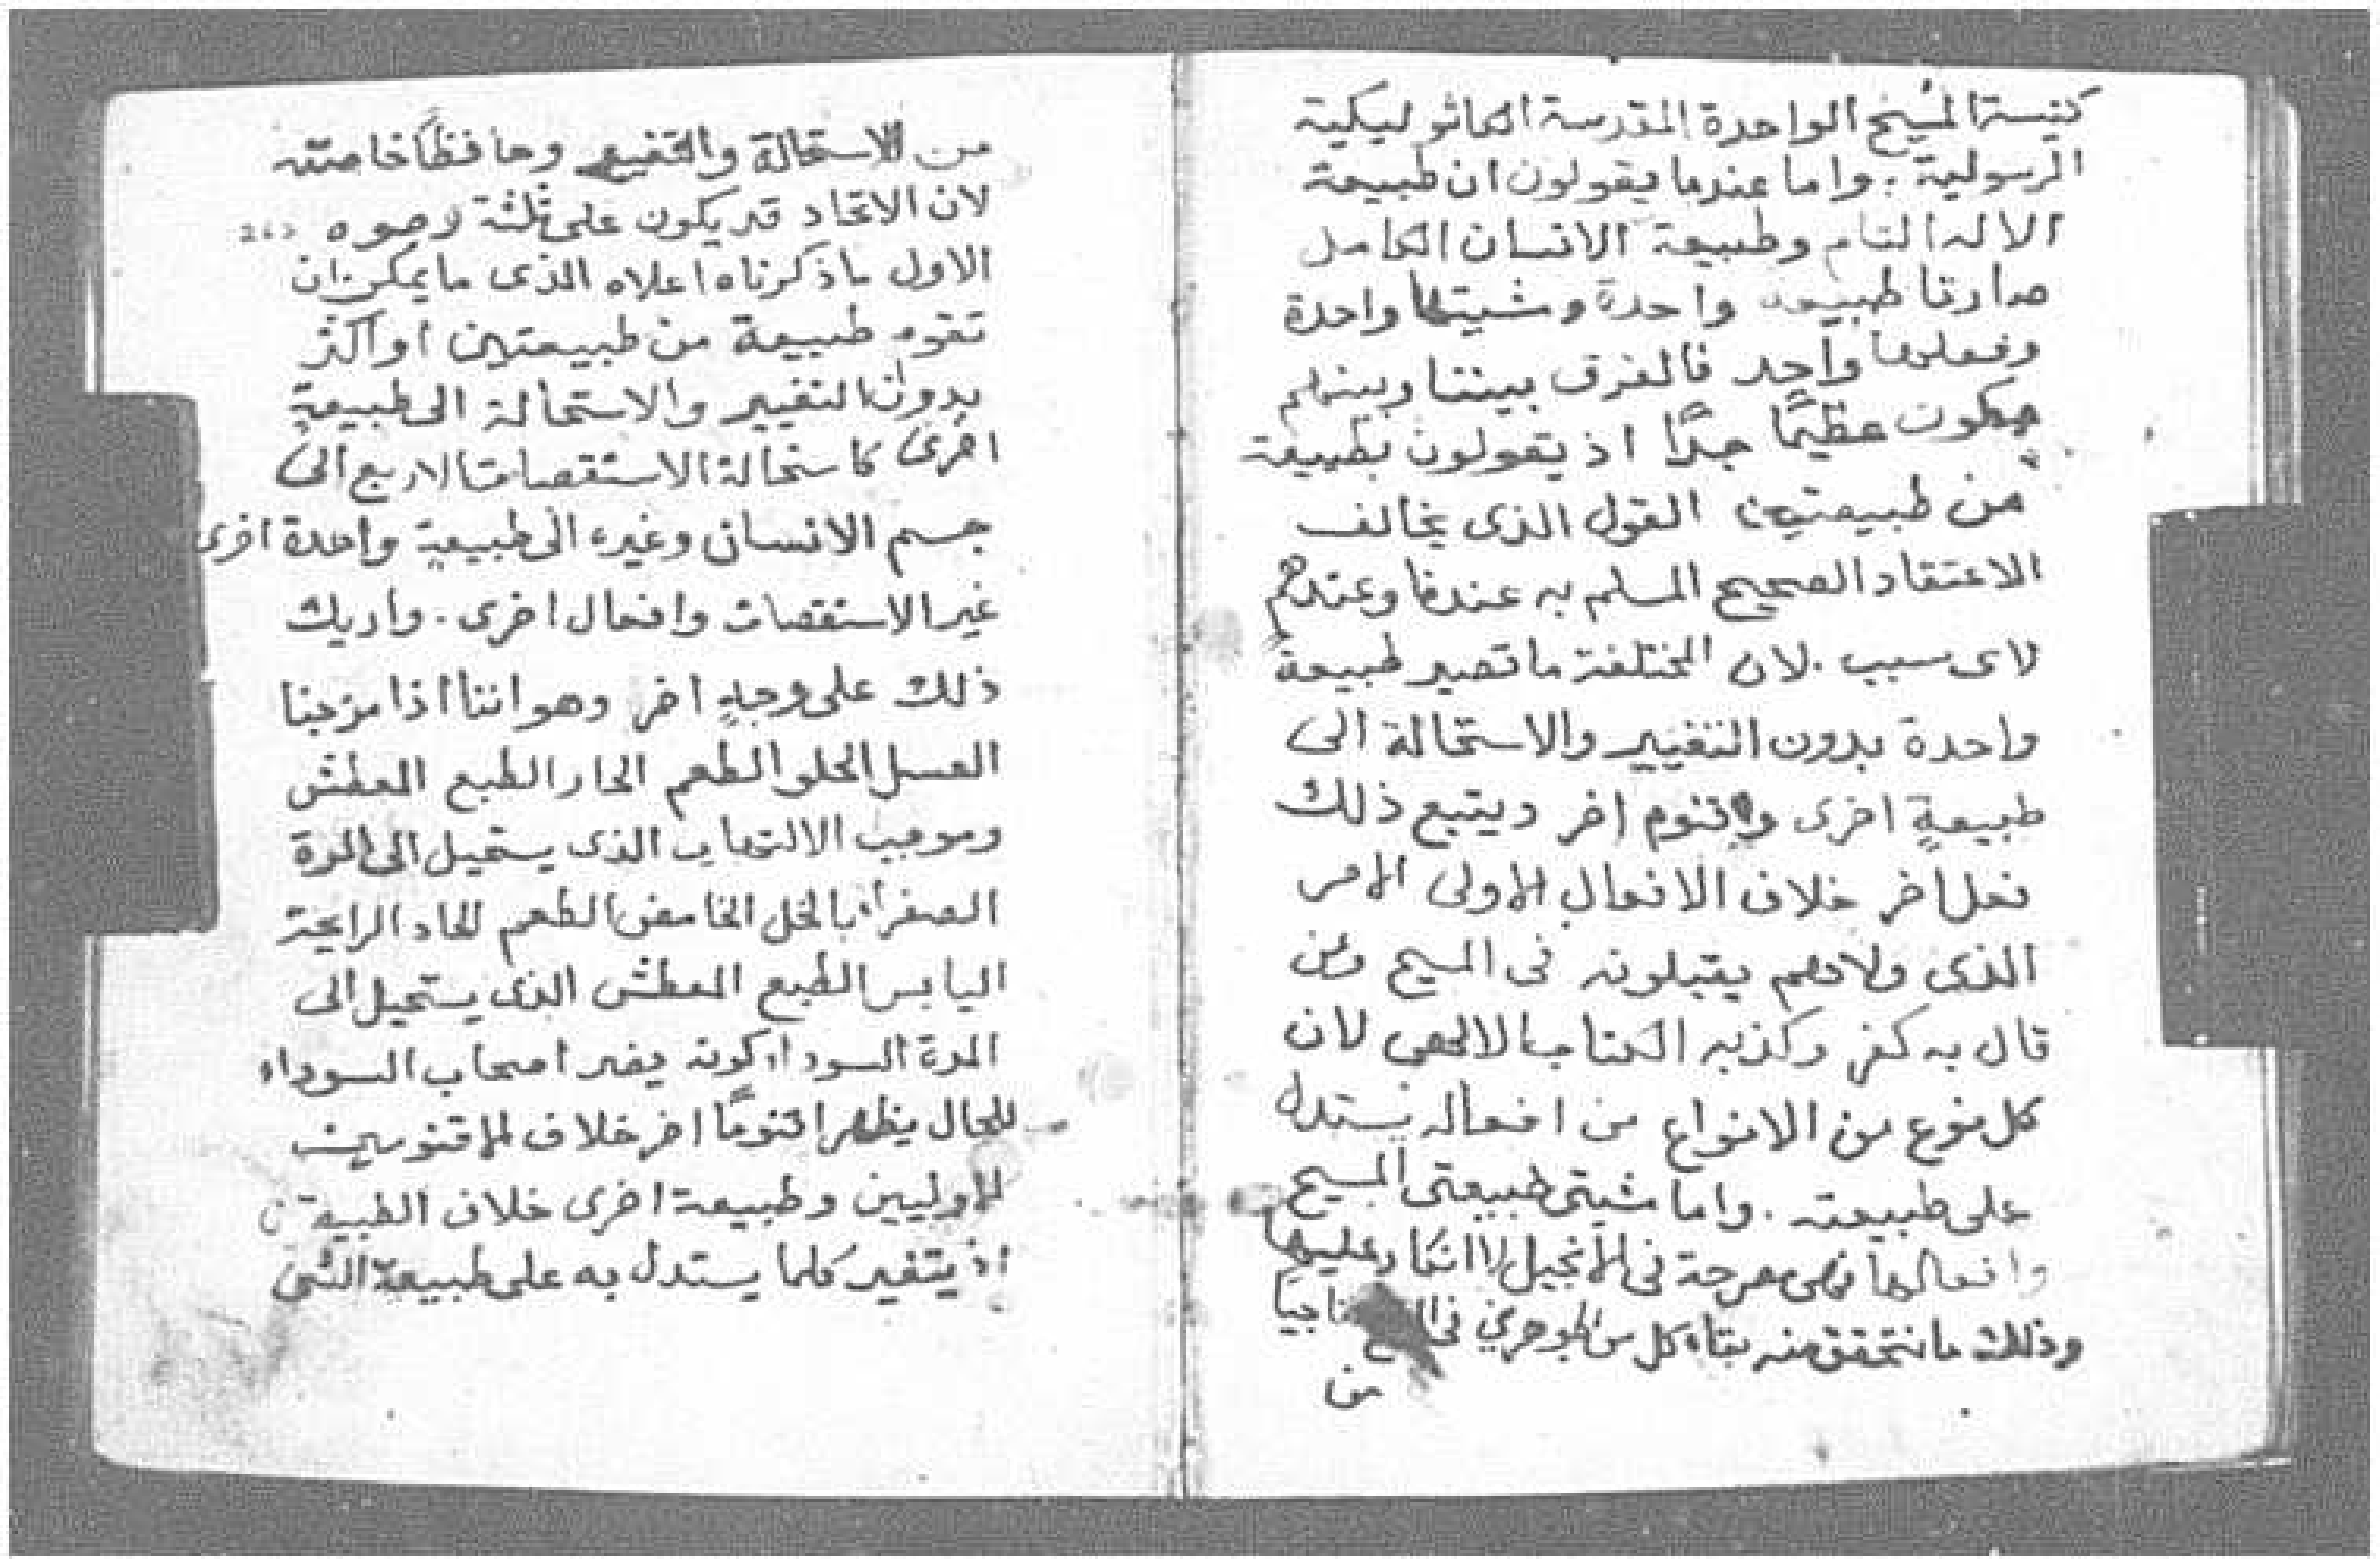 كنيسة المسيح الواحدة المقدسة الكاثوليكية
الرسولية. واما عندما يقولون ان طبيعة
الاله التام وطبيعة الانسان الكامل
صارتا طبيعه واحدة ومشيتها واحدة
وفعلهما واحد فالفرق بيننا وبينهم
يكون عظيمًا جدًا اذ يقولون بطبيعة
من طبيعتين القول الذى يخالف
الاعتقاد الصحيح المسلم به عندنا وعندهم
لاى سبب. لان المختلفة ما تصير طبيعة
واحدة بدون التغيير والاستحالة الى
طبيعةٍ اخرى واقنوم اخر ويتبع ذلك
فعل اخر خلاف الافعال الاولى الامر
الذى ولا هم يقبلونه فى المسيح ومن
قال به كفر وكذبه الكتاب الالهى لان
كل نوع من الانواع من افعاله يستدل
على طبيعته. واما مشيتى طبيعتى المسيح
وافعالهما فهى صرحة فى الانجيل لا انكار عليها
وذلك ما نتحقق منه بقاء كل من الجوهرين فى ناجيا
من
من الاستحالة والتغيير وحافظًا خاصته
لان الاتحاد قد يكون على ثلثة وجوه
الاول ما ذكرناه اعلاه الذى ما يمكن ان
تقوم طبيعة من طبيعتين او اكثر
بدون التغيير والاستحالة الى طبيعةٍ
اخرى كاستحالة الاستقصات الاربع الى
جسم الانسان وغيره الى طبيعةٍ واحدة اخرى
غير الاستقصات وافعال اخرى. واريك
ذلك على وجهٍ اخر وهو اننا اذا مزجنا
العسل الحلو الطعم الحار الطبع المعطش
وموجب الالتهاب الذى يستحيل الى المرة
الصفراء بالخل الخامض الطعم الحاد الرايحة
اليابس الطبع المعطش الذى يستحيل الى
المرة السوداء كونه يضر اصحاب السوداء
للحال يظهر اقنومًا اخر خلاف الاقنومين
الاوليين وطبيعة اخرى خلاف الطبيعتين
اذ يتغير كلما يستدل به على طبيعة الشى